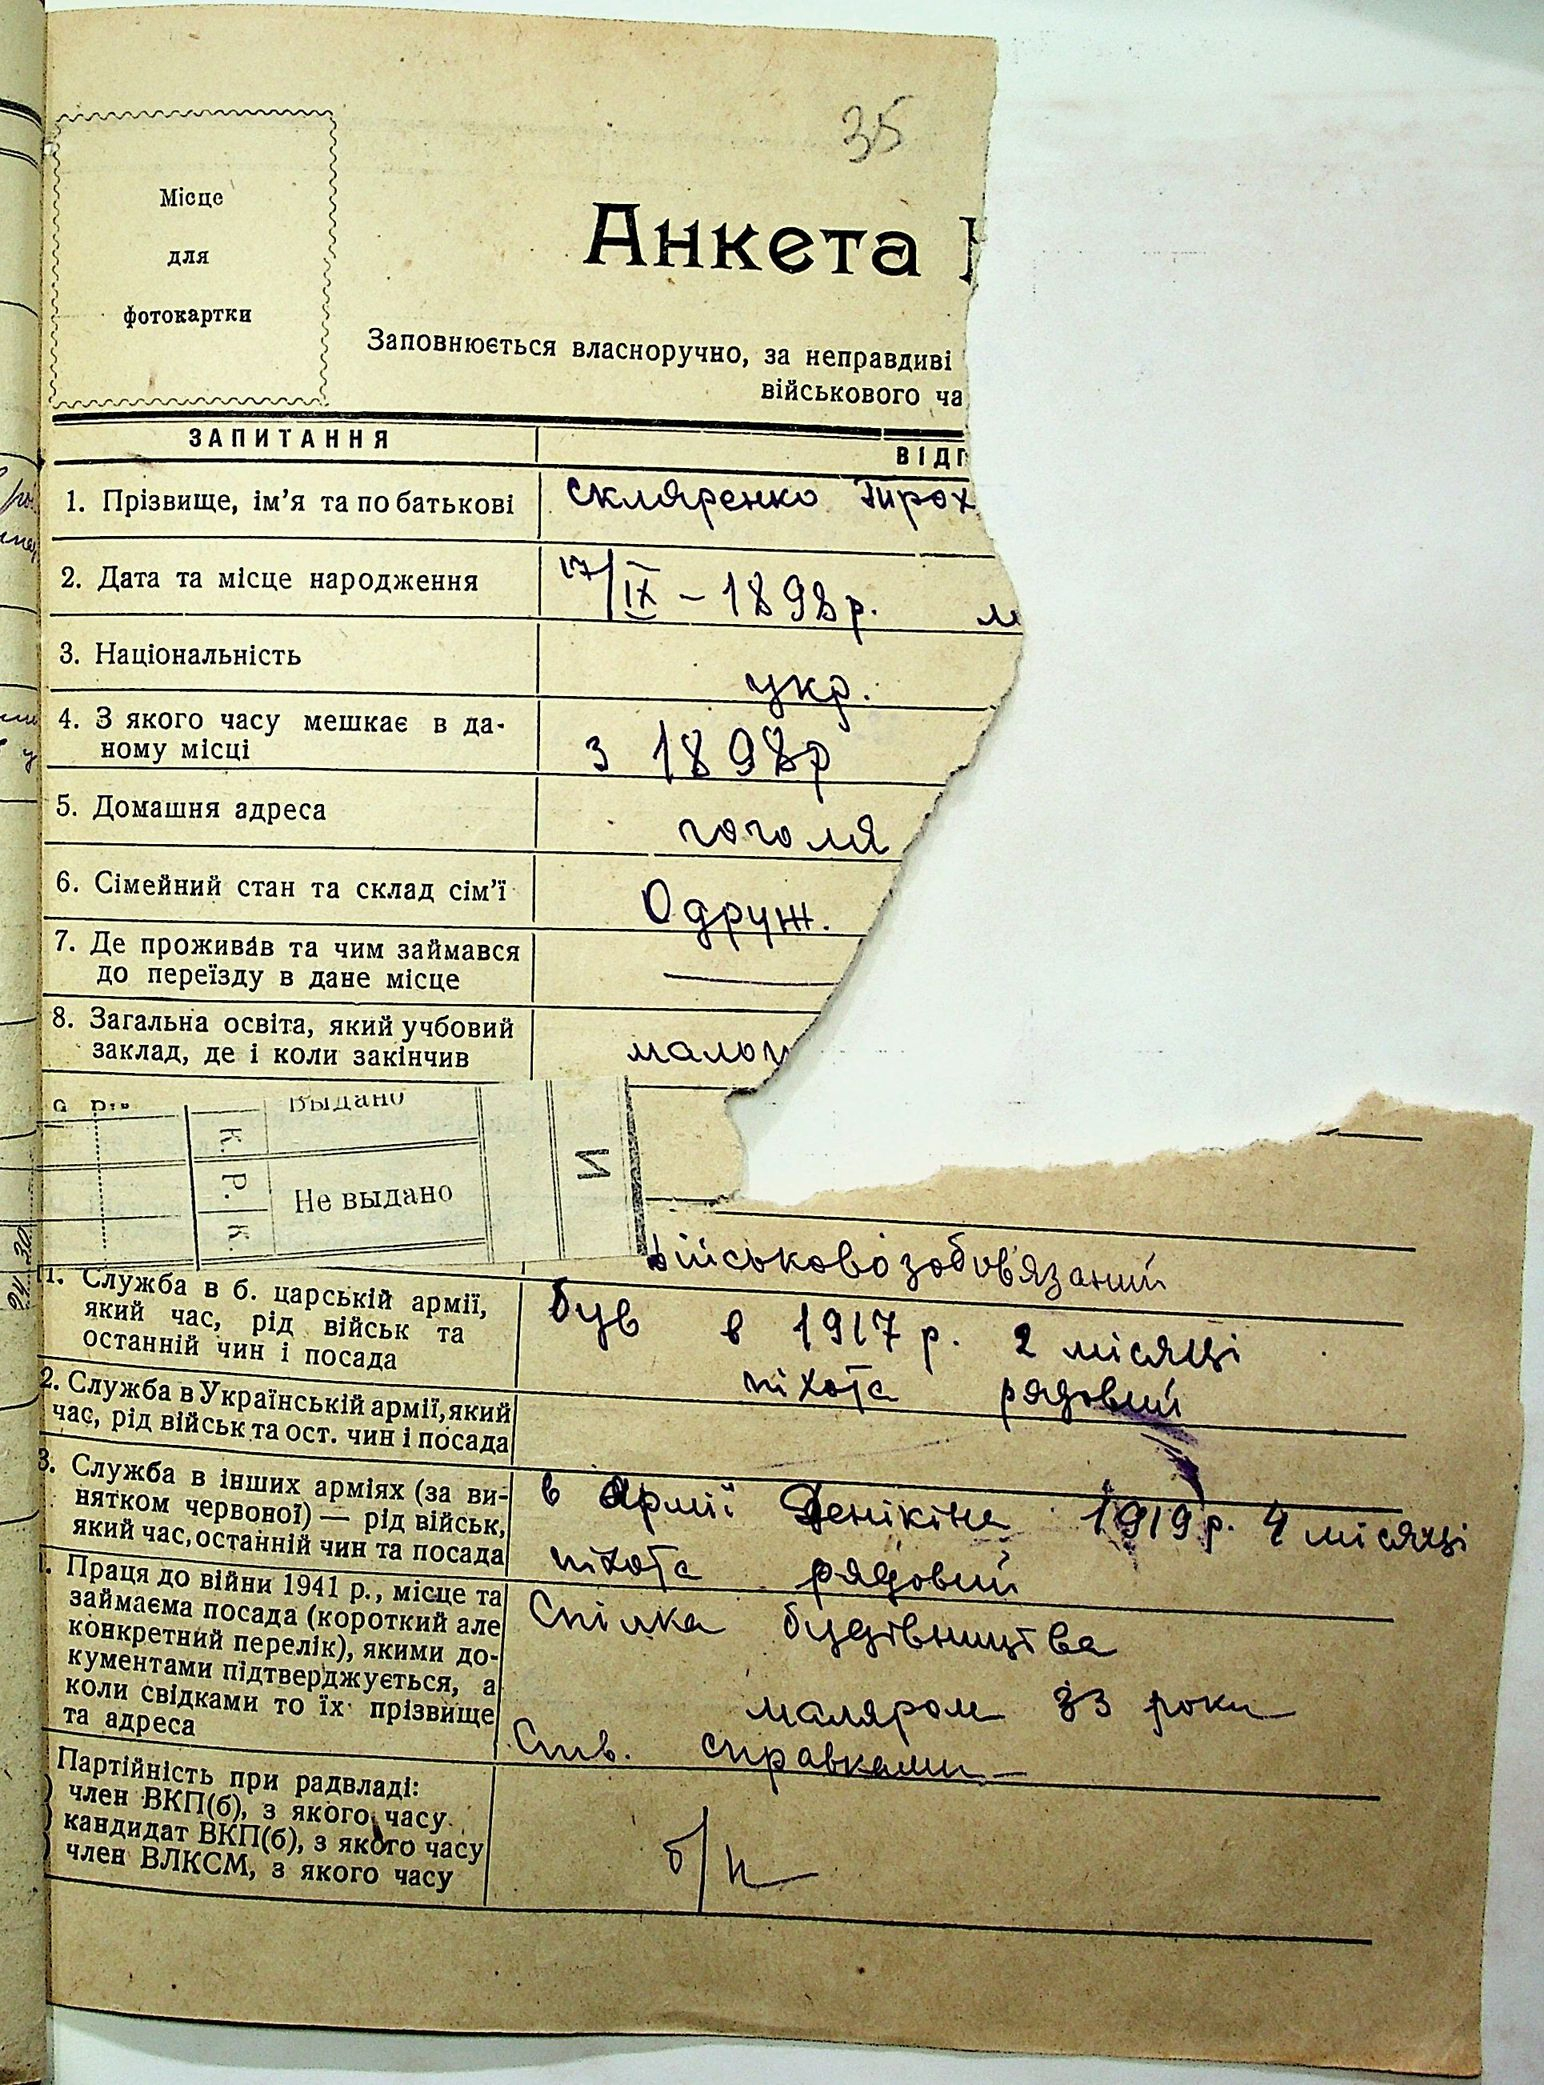 35
Місце
для
фотокартки
Анкета
Заповнюється власноручно, за неправдиві
військового ча
ЗАПИТАННЯ
ВІДП
1. Прізвище, ім'я та по батькові
Скляренко Тирох
2. Дата та місце народження
17/IX – 1898р. м
3. Національність
укр.
4. З якого часу мешкає в да-
ному місці
з 1898р
5. Домашня адреса
гоголя
6. Сімейний стан та склад сім'ї
Одруж.
7. Де проживав та чим займався
до переїзду в дане місце
—
8. Загальна освіта, який учбовий
заклад, де і коли закінчив
малоп
Выдано
К. Р. К.
Не выдано
И
військовозобов'язаний
1. Служба в б. царській армії,
який час, рід військ та
останній чин і посада
був в 1917 р. 2 місяці
піхота рядовий
2. Служба в Українській армії, який
час, рід військ та ост. чин і посада
3. Служба в інших арміях (за ви-
нятком червоної) — рід військ,
який час, останній чин та посада
в армії Денікіна 1919р. 4 місяці
піхота рядовий
Праця до війни 1941 р., місце та
займаєма посада (короткий але
конкретний перелік), якими до-
кументами підтверджується, а
коли свідками то їх прізвище
та адреса
Спілка будівництва
маляром 33 роки
справками –
Партійність при радвладі:
член ВКП(б), з якого часу
кандидат ВКП(б), з якого часу
член ВЛКСМ, з якого часу
б/п